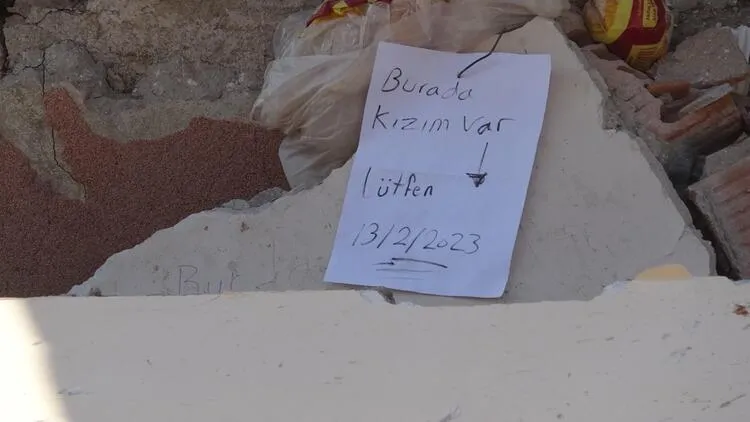 Burada
kızım var
lütfen
13/2/2023